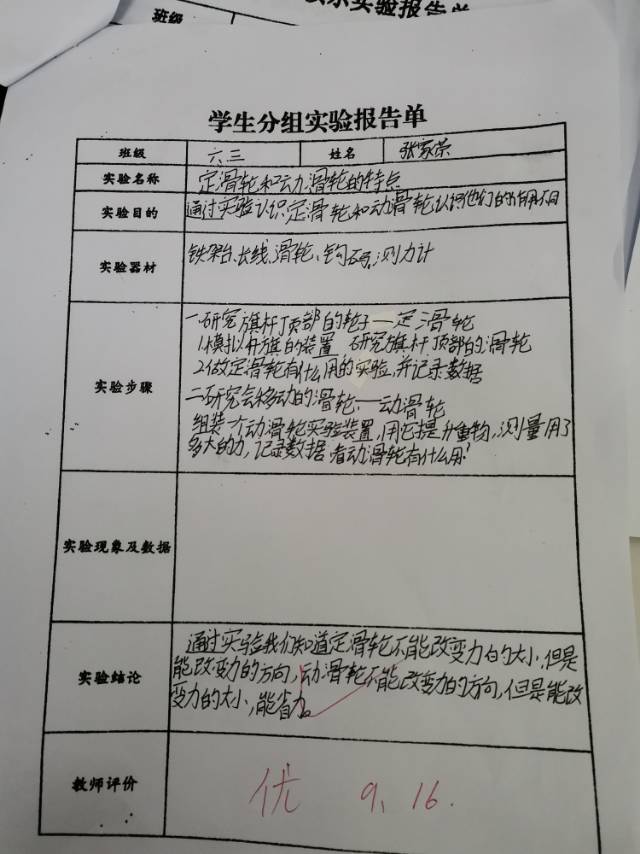 班级
实验报告单
学生分组实验报告单
班级 六三 姓名 张家荣
实验名称 定滑轮和动滑轮的特点
实验目的 通过实验认识定滑轮和动滑轮认识他们的作用不同
实验器材 铁架台、长线、滑轮、钩码、测力计
一.研究旗杆顶部的轮子——定滑轮
1.模拟升旗的装置 研究旗杆顶部的滑轮
2.做定滑轮有什么用的实验,并记录数据
实验步骤
二.研究会移动的滑轮——动滑轮
组装一个动滑轮实验装置,用它提升重物,测量用了
多大的力,记录数据 看动滑轮有什么用!
实验现象及数据
通过实验我们知道定滑轮不能改变力的大小,但是
实验结论 能改变力的方向,动滑轮不能改变力的方向,但是能改
变力的大小,能省力。
教师评价 优 9.16.